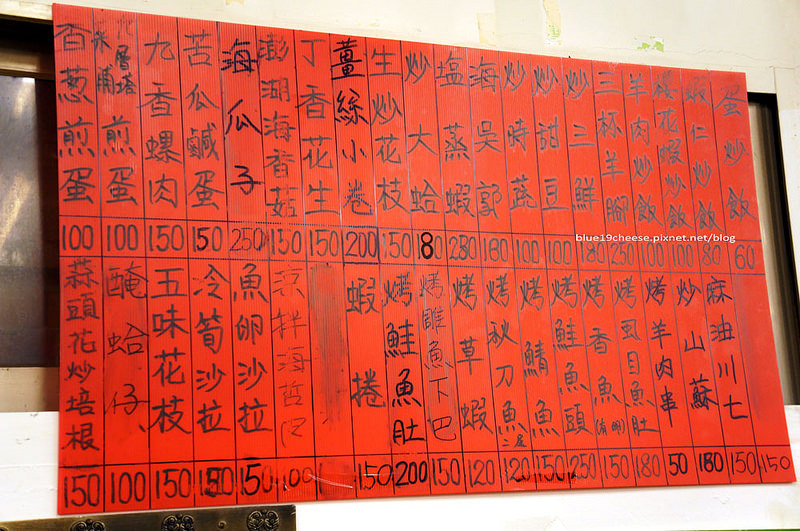 蛋炒飯 60
蝦仁炒飯 80
櫻花蝦炒飯 100
羊肉炒飯 100
三杯羊腳 250
炒三鮮 180
炒甜豆 100
炒時蔬 100
海吳郭 180
塩蒸蝦
炒大蛤 180
生炒花枝 150
薑絲小卷 200
丁香花生 150
澎湖海香菇 150
海瓜子 250
苦瓜鹹蛋 150
九香螺肉 150
九層塔 米哺 煎蛋 100
百葱煎蛋 100
150
麻油川七 150
炒山蘇 180
烤羊肉串 50
烤虱目魚肚 180
烤香魚(有卵) 150
烤鮭魚頭 250
烤鯖魚 150
烤秋刀魚二尾 120
烤草蝦 120
烤雕魚下巴 150
烤鮭魚肚 200
蝦捲 150
涼拌海哲 100
魚卵沙拉 150
冷筍沙拉 150
五味花枝 150
醃蛤仔 100
蒜頭花炒培根 150
blue19cheese.pixnet.net/blog